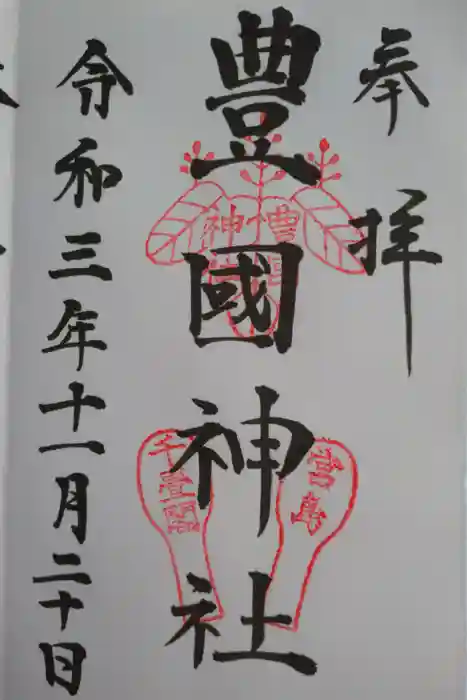 奉拝
豊國神社
千畳閣
宮島
令和三年十一月二十日